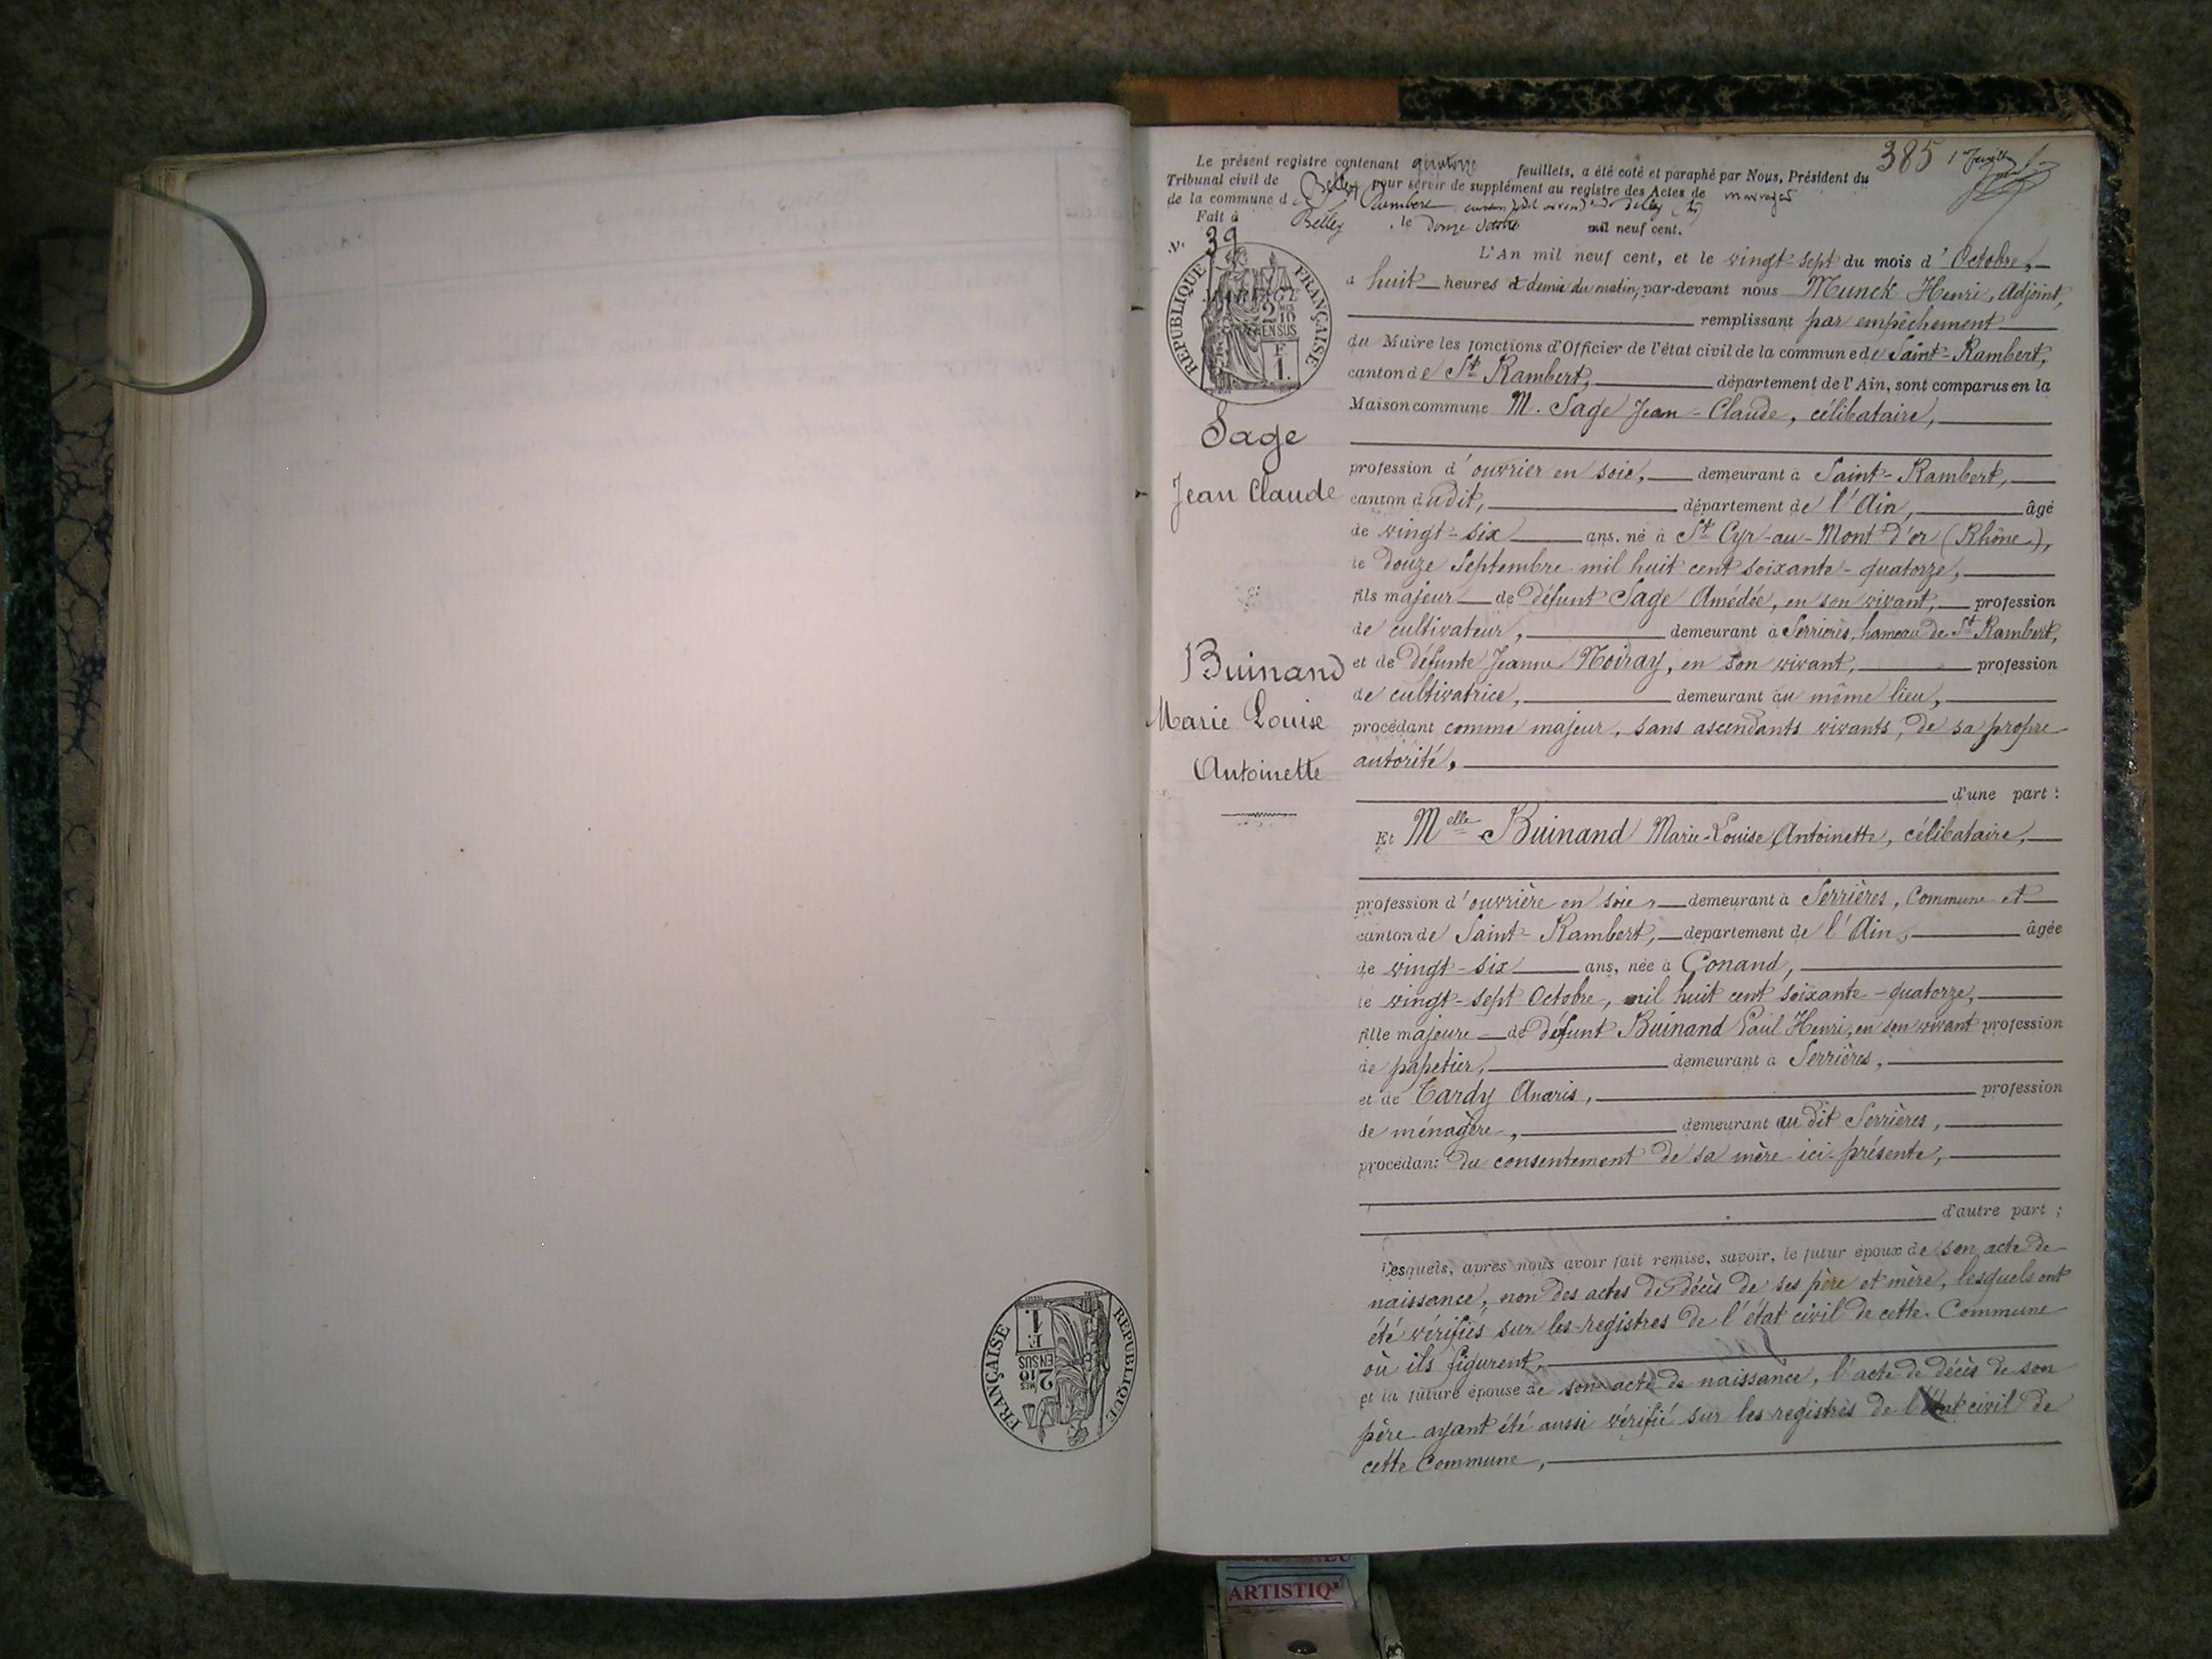 385
Le présent registre contenant feuillets, a été coté et paraphé par Nous, Président du
Tribunal civil de Belley pour servir de supplément au registre des Actes de mariages
de la commune d Rambert
Fait à Belley, le douze mil neuf cent.
N. 39
L'An mil neuf cent, et le vingt-sept du mois d'Octobre,
à huit heures et demie du matin, par-devant nous Munck Henri, Adjoint,
remplissant par empêchement
du Maire les fonctions d'Officier de l'état civil de la commune de Saint-Rambert,
canton de St Rambert, département de l'Ain, sont comparus en la
Maison commune M. Sage Jean-Claude, célibataire,
profession d'ouvrier en soie, demeurant à Saint-Rambert,
canton dudit, département de l'Ain, âgé
de vingt-six ans, né à St Cyr-au-Mont-d'or (Rhône),
le douze Septembre mil huit cent soixante-quatorze,
fils majeur de défunt Sage Amédée, en son vivant, profession
de cultivateur, demeurant à Serrières, hameau de St Rambert,
et de défunte Jeanne Noiray, en son vivant, profession
de cultivatrice, demeurant au même lieu,
procédant comme majeur, sans ascendants vivants, de sa propre
autorité,
d'une part :
Et Melle Buinand Marie-Louise Antoinette, célibataire,
profession d'ouvrière en soie, demeurant à Serrières, Commune et
canton de Saint-Rambert, département de l'Ain, âgée
de vingt-six ans, née à Conand,
le vingt-sept Octobre, mil huit cent soixante-quatorze,
fille majeure de défunt Buinand Paul Henri, en son vivant profession
de papetier, demeurant à Serrières,
et de Tardy Anaris, profession
de ménagère, demeurant au dit Serrières,
procédant du consentement de sa mère ici présente,
d'autre part ;
Lesquels, après nous avoir fait remise, savoir, le futur époux de son acte de
naissance, non des actes de décès de ses père et mère, lesquels ont
été vérifiés sur les registres de l'état civil de cette Commune
où ils figurent,
et la future épouse de son acte de naissance, l'acte de décès de son
père ayant été aussi vérifié sur les registres de l'état civil de
cette Commune,
Sage
Jean Claude
Buinand
Marie Louise
Antoinette
REPUBLIQUE FRANÇAISE
2 10
EN SUS
F.
1.
REPUBLIQUE FRANÇAISE
2 10
EN SUS
F.
1.
ARTISTIQ